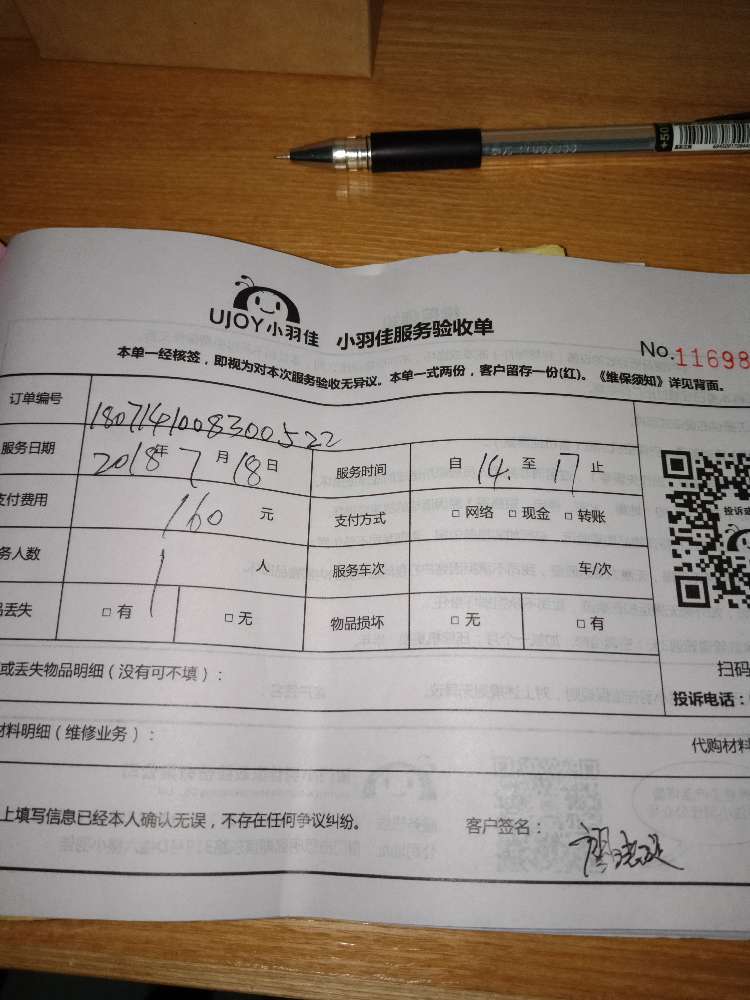 +50
UJOY小羽佳 小羽佳服务验收单
No.11698
本单一经核签，即视为对本次服务验收无异议。本单一式两份，客户留存一份(红)。《维保须知》详见背面。
订单编号 1807141008300522
服务日期 2018年7月18日 服务时间 自14.至17止
支付费用 160元 支付方式 □网络 □现金 □转账
务人数 1人 服务车次 车/次
品丢失 □有 □无 物品损坏 □无 □有
投诉或
扫码
投诉电话：
或丢失物品明细（没有可不填）：
材料明细（维修业务）： 代购材料
上填写信息已经本人确认无误，不存在任何争议纠纷。 客户签名：